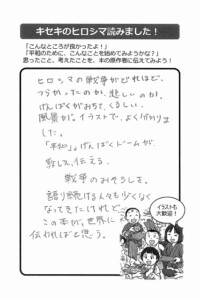 キセキのヒロシマ読みました！
「こんなところが良かったよ！」
「平和のために、こんなことを始めてみようかな？」
思ったこと、考えたことを、本の原作者に伝えてみよう！
ヒロシマの戦争がどれほど、
つらかったのか、悲しいのか。
げんばくがおちて、くるしい
風景が。イラストで、よくわかりま
した。
「平和」。げんばくドームが
教え、伝える。
戦争のおそろしさ。
語り続ける人々も少なく
なってきたけれど
この本が、世界に
伝わればと思う。
イラストも
大歓迎！